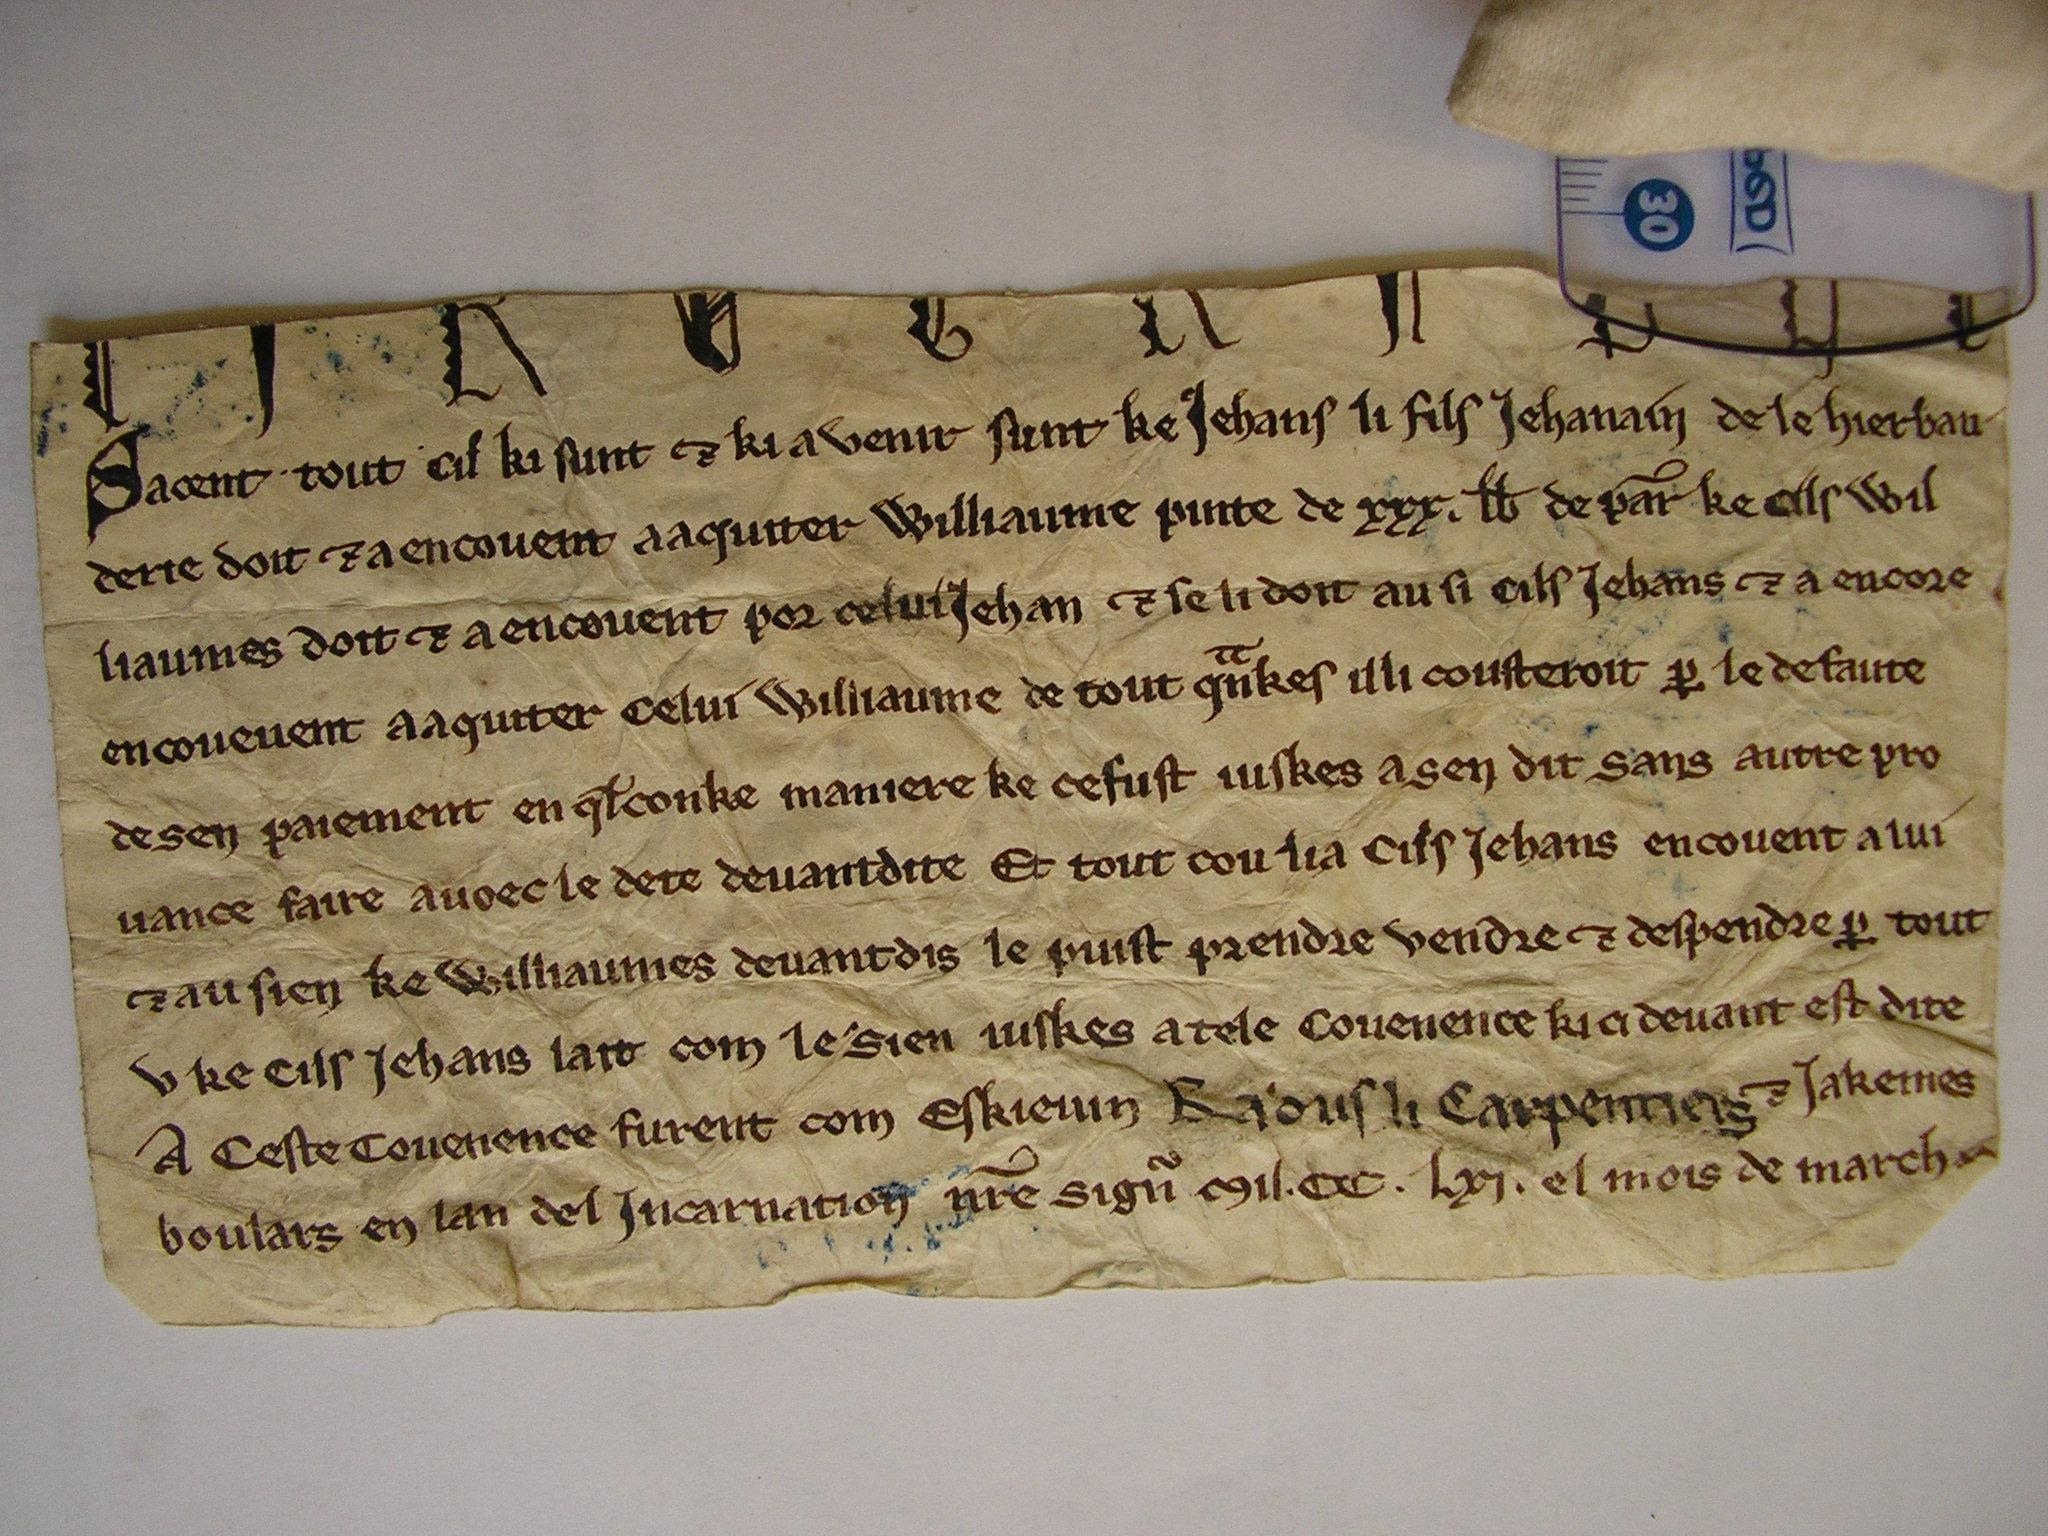 Sacent tout cil ki sunt ⁊ ki a venir sunt ke Jehans li fils Jehanain de le hierbau
derie doit ⁊ a encouent a aquiter Williaume pinte de xxx. lb de par ke cils Wil
liaumes doit ⁊ a encouent por celui Jehan ⁊ se li doit ausi cils Jehans ⁊ a encore
encouenent a aquiter celui Williaume de tout qankes il li cousteroit ꝑ le defaute
de sen paiement en qlconke maniere ke ce fust iuskes a sen dit sans autre pro
uance faire avoec le dete deuantdite Et tout cou li a Cils Jehans encouent a lui
⁊ au sien ke Williaumes deuantdis le puist prendre vendre ⁊ despendre ꝑ tout
v ke Cils Jehans lait com le sien iuskes a tele Couenence ki ci deuant est dite
A Ceste Couenence furent com Eskieuin Raous li Carpentiers ⁊ Jakemes
boulars en lan del Incarnation nre Signu Mil. CC. Lxi. el mois de march
30